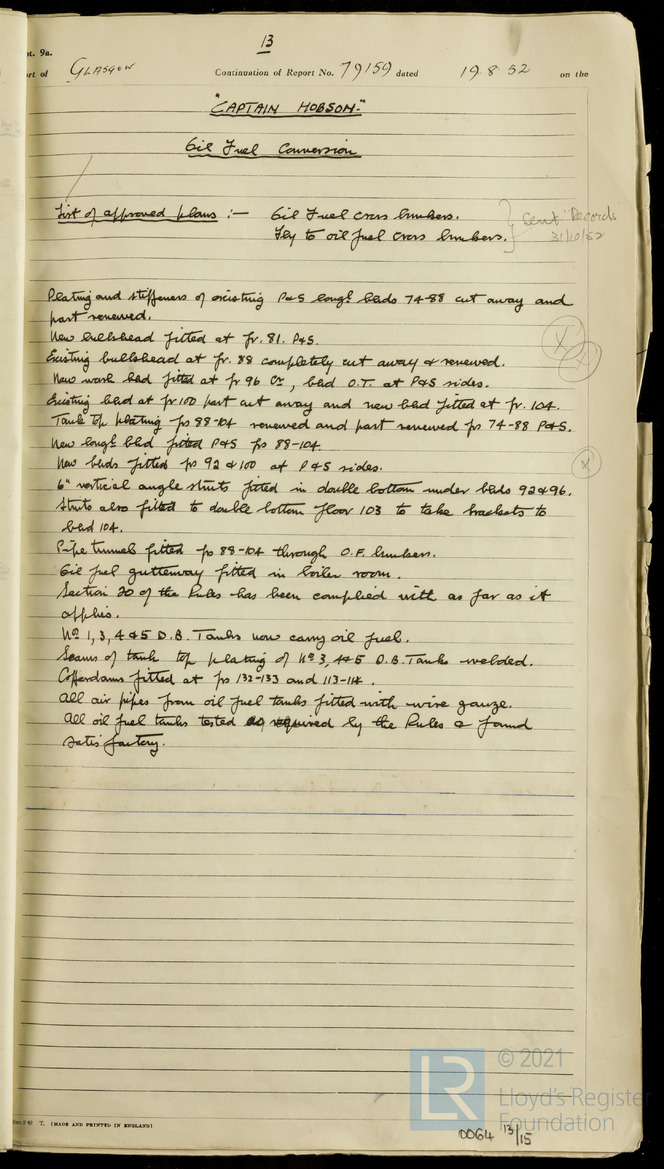 13
pt. 9a.
rt of Glasgow Continuation of Report No. 79159 dated 19.8.52 on the
"CAPTAIN HOBSON."
Oil Fuel Conversion
List of approved plans :— Oil Fuel cross bunkers.
Fly to oil fuel cross bunkers.
Sent "Records"
31/10/52
Plating and stiffeners of existing P&S longl. blds 74-88 cut away and
part renewed.
New bulkshead fitted at fr. 81. P&S.
Existing bulkshead at fr. 88 completely cut away & renewed.
New wash bhd fitted at fr 96 Cr, bhd O.T. at P&S sides.
Existing bhd at fr 100 part cut away and new bhd fitted at fr. 104.
Tank top plating frs 88-104 renewed and part renewed frs 74-88 P&S.
New longl bhd fitted P&S frs 88-104.
New bhds fitted frs 92 & 100 at P&S sides.
6" vertical angle struts fitted in double bottom under bhds 92 & 96.
Struts also fitted to double bottom floor 103 to take brackets to
bhd 104.
Pipe tunnel fitted frs 88-104 through O.F. bunkers.
Oil fuel gutterway fitted in boiler room.
Section 20 of the Rules has been complied with as far as it
applies.
No 1, 3, 4 & 5 D.B. Tanks now carry oil fuel.
Seams of tank top plating of No 3, 4 & 5 D.B. Tanks welded.
Cofferdams fitted at frs 132-133 and 113-114.
All air pipes from oil fuel tanks fitted with wire gauze.
All oil fuel tanks tested as required by the Rules & found
satisfactory.
X
X
X
T. (MADE AND PRINTED IN ENGLAND)
LR
© 2021
Lloyd's Register
Foundation
0064 13/15